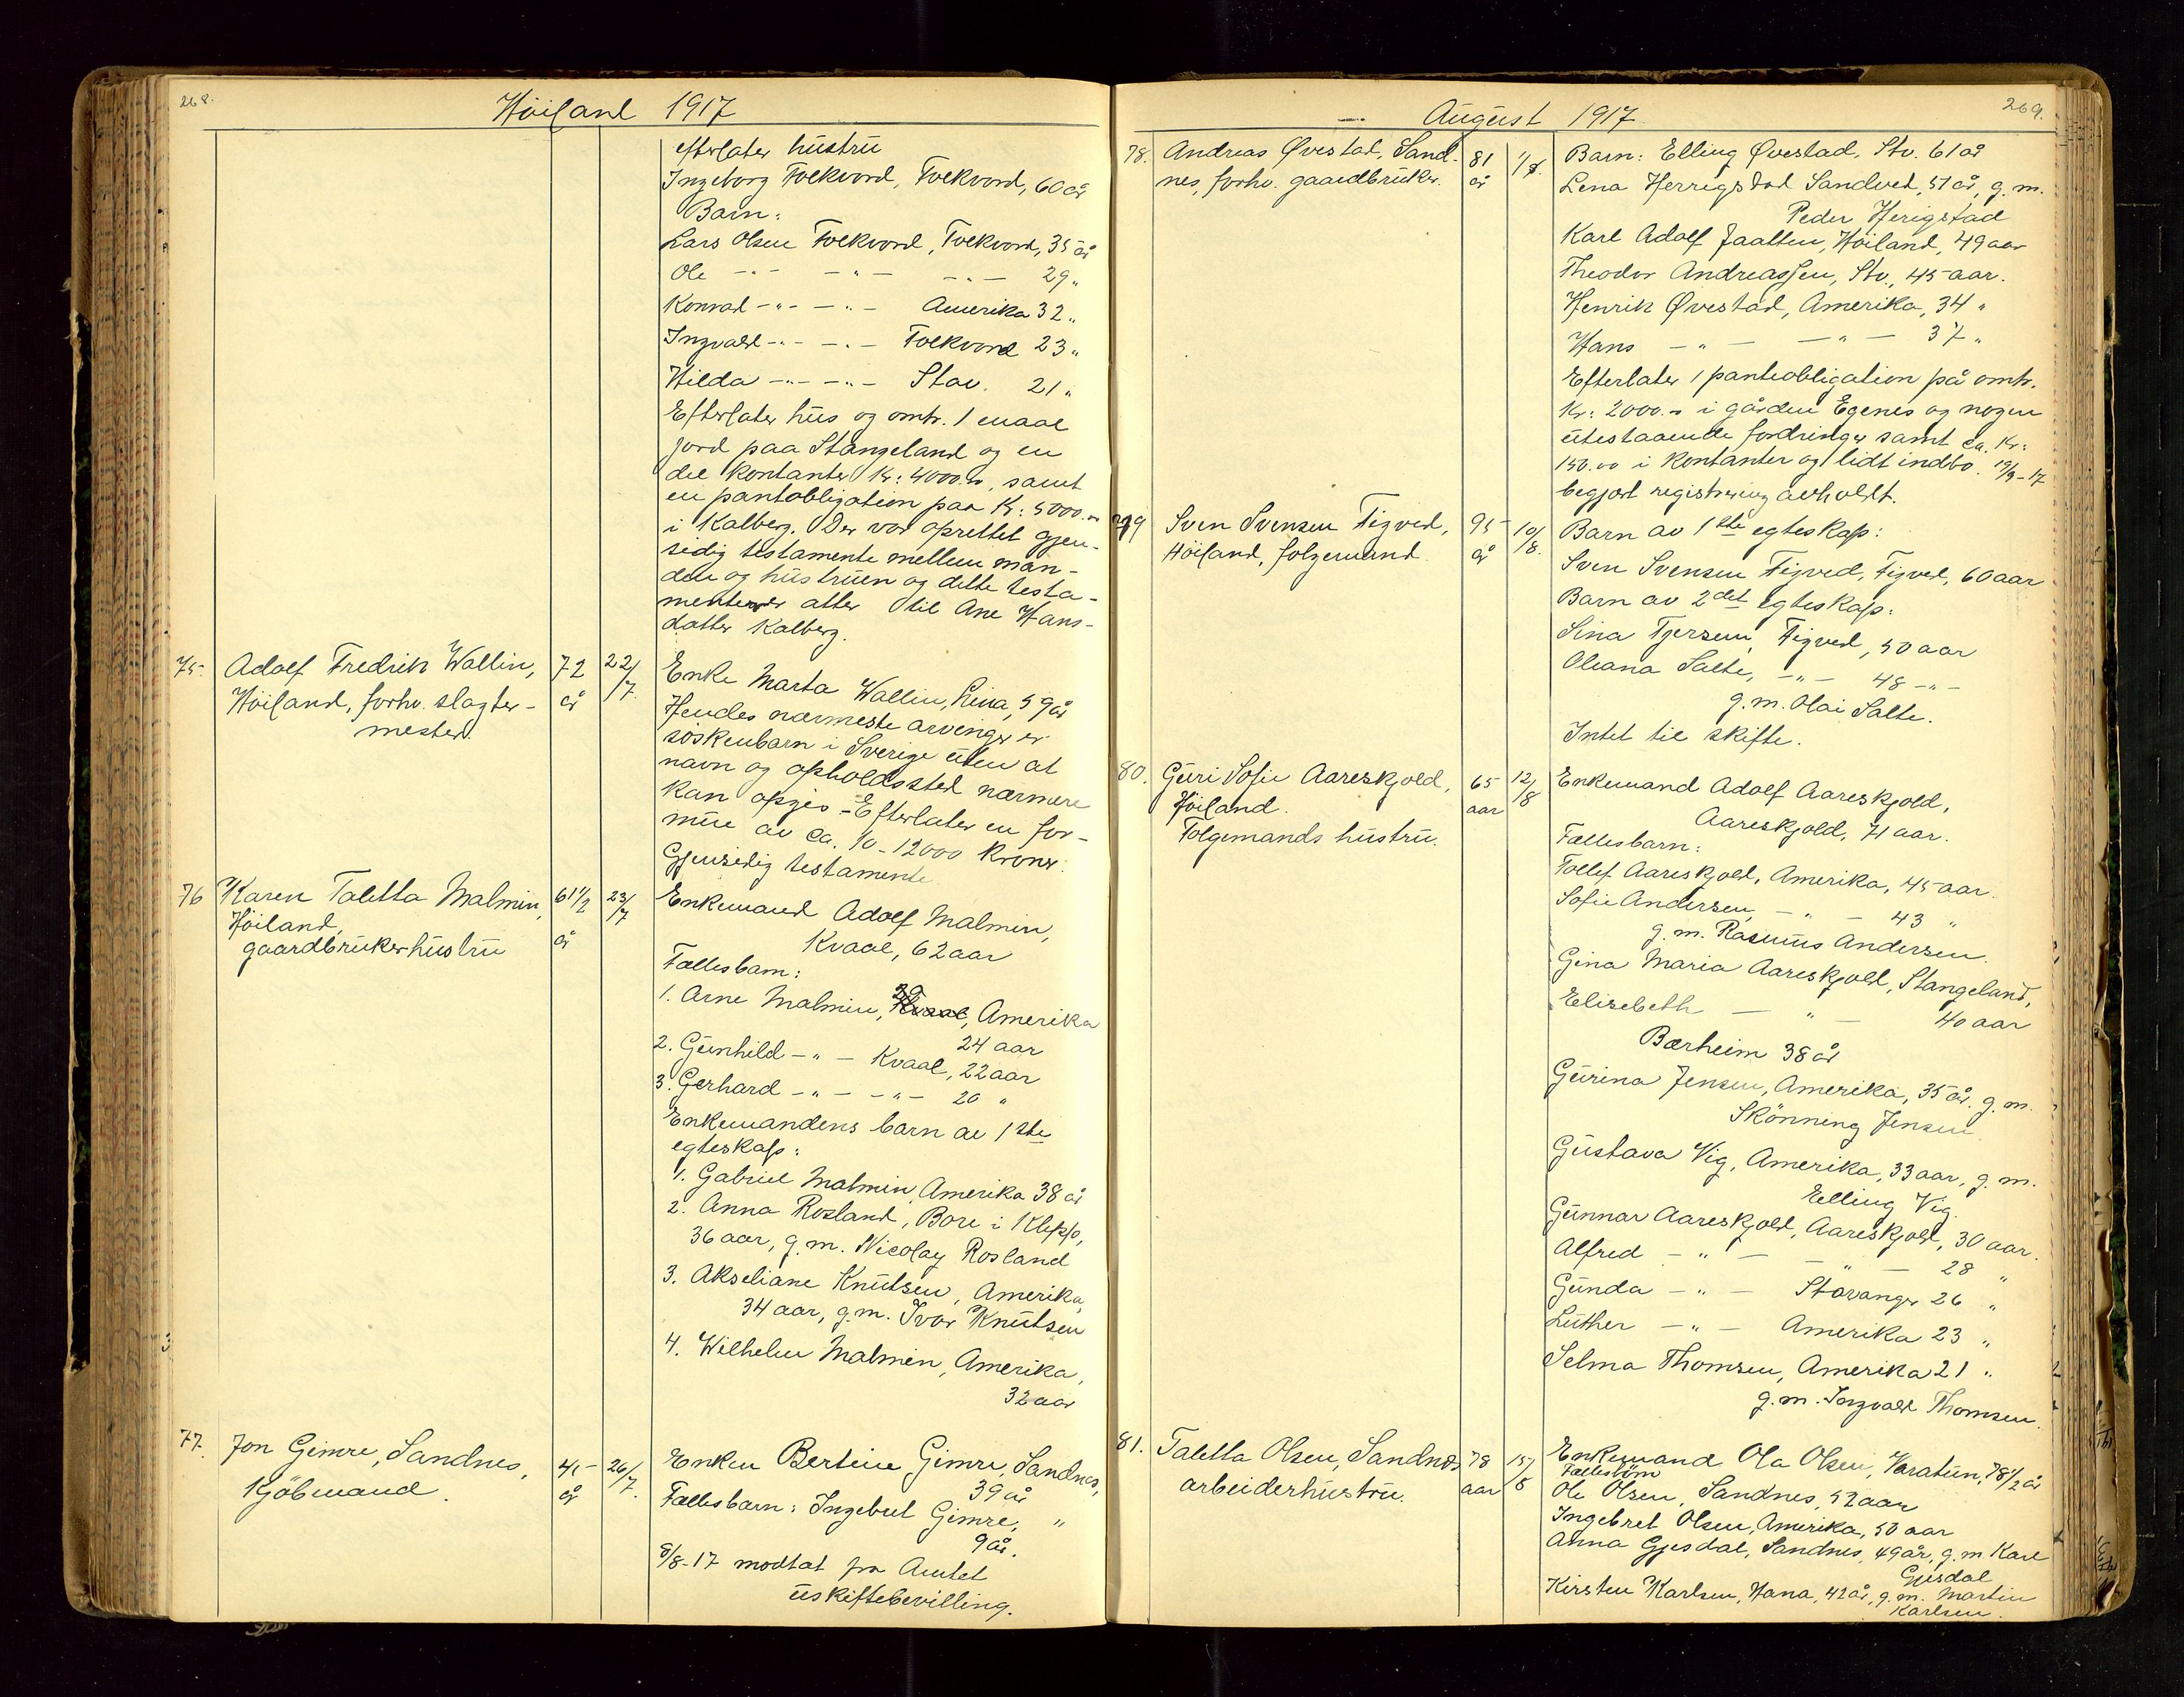 268.
Höiland 1917
efterlater hustru
Ingeborg Folkvord, Folkvord, 60 år
Barn:
Lars Olsen Folkvord, Folkvord, 35 år
Ole -"- -"- -"- 29 "
Konrad -"- -"- Amerika 32 "
Ingvald -"- -"- Folkvord 23 "
Hilda -"- -"- Stav. 21 "
Efterlater hus og omtr. 1 maal
jord paa Stangeland og en
del kontanter Kr: 4000.00, samt
en pantobligation paa Kr: 5000.00
i Kalberg. Der var oprettet gjen-
sidig testamente mellem man-
den og hustruen og dette testa-
menterer atter til Ane Hans-
datter Kalberg.
75. Adolf Fredrik Wallin, 72 22/
Höiland, forhv. slagter- år 7.
mester.
Enke Marta Wallin, Lina, 59 år
Hendes nærmeste arvinger er
söskenbarn i Sverige uten at
navn og opholdssted nærmere
kan opgis - Efterlater en for-
mue av ca. 10-12000 kroner.
Gjensidig testamente
76 Karen Taletta Malmin, 61 1/2 23/
Höiland, 7
gaardbrukerhustru år
Enkemand Adolf Malmin,
Kvaal, 62 aar
Fællesbarn:
1. Arne Malmin, Kvaal, Amerika
24 aar
2. Gunhild -"- Kvaal, 22 aar
3. Gerhard -"- -"- 20 "
Enkemandens barn av 1ste
egteskap:
1. Gabriel Malmin, Amerika 38 år
2. Anna Rosland, Bore i Klepp,
36 aar, g.m. Nicolay Rosland
3. Akseliane Knutsen, Amerika,
34 aar, g.m. Ivar Knutsen
4. Wilhelm Malmin, Amerika,
32 aar
77. Jon Gimre, Sandnes, 45 26/
Kjöbmand. år 7.
Enken Bertine Gimre, Sandnes,
39 år
Fællesbarn: Ingebret Gimre, "
9 år.
8/8-17 modtat fra Amtet
uskiftebevilling.
269.
August 1917.
78. Andreas Øvestad, Sand- 81 1/8.
nes, forhv. gaardbruker. år
Barn: Elling Øvestad, Stv. 61 år
Lena Herrigstad Sandved, 51 år, g.m.
Peder Herigstad
Karl Adolf Jaatten, Höiland, 49 aar
Theodor Andreassen, Stv., 45 aar.
Henrik Øvestad, Amerika, 34 "
Hans -"- -"- 37 "
Efterlater 1 panteobligation på omtr.
Kr: 2000.00 i gården Egenes og nogen
utestaaende fordringer samt ca. Kr:
150.00 i kontanter og lidt indbo. 19/9-17
begjært registrering avholdt.
79 Sven Svensen Figved, 95 10/
Höiland, folgemand år 8.
Barn av 1ste egteskap:
Sven Svensen Figved, Figved, 60 aar
Barn av 2det egteskap:
Sina Tjersen, Figved, 50 aar
Oleana Salte, -"- 48 -"-
g.m. Olai Salte.
Intet til skifte.
80. Guri Sofie Aareskjold, 65 12/
Höiland. aar 8
Folgemands hustru.
Enkemand Adolf Aareskjold,
Aareskjold, 71 aar.
Fællesbarn:
Tollef Aareskjold, Amerika, 45 aar.
Sofie Andersen, -"- 43 "
g.m. Rasmus Andersen.
Gina Maria Aareskjold, Stangeland,
40 aar
Elisebeth -"-
Bærheim 38 år
Gurina Jensen, Amerika, 35 år. g.m.
Skönning Jensen
Gustava Vig, Amerika, 33 aar, g.m.
Elling Vig.
Gunnar Aareskjold, Aareskjold, 30 aar.
Alfred -"- -"- 28 "
Gunda -"- Stavanger 26 "
Luther -"- Amerika 23 "
Selma Thomsen, Amerika 21 "
g.m. Ingvald Thomsen.
81. Taletta Olsen, Sandnes 78 15/
arbeiderhustru. aar 8
Enkemand Ola Olsen, Varatun, 78 1/2 år
Fællesbørn
Ole Olsen, Sandnes, 52 aar
Ingebret Olsen, Amerika, 50 aar
Anna Gjesdal, Sandnes, 49 år, g.m Karl
Gjesdal
Kirsten Karlsen, Hana, 42 år, g.m. Martin
Karlsen.